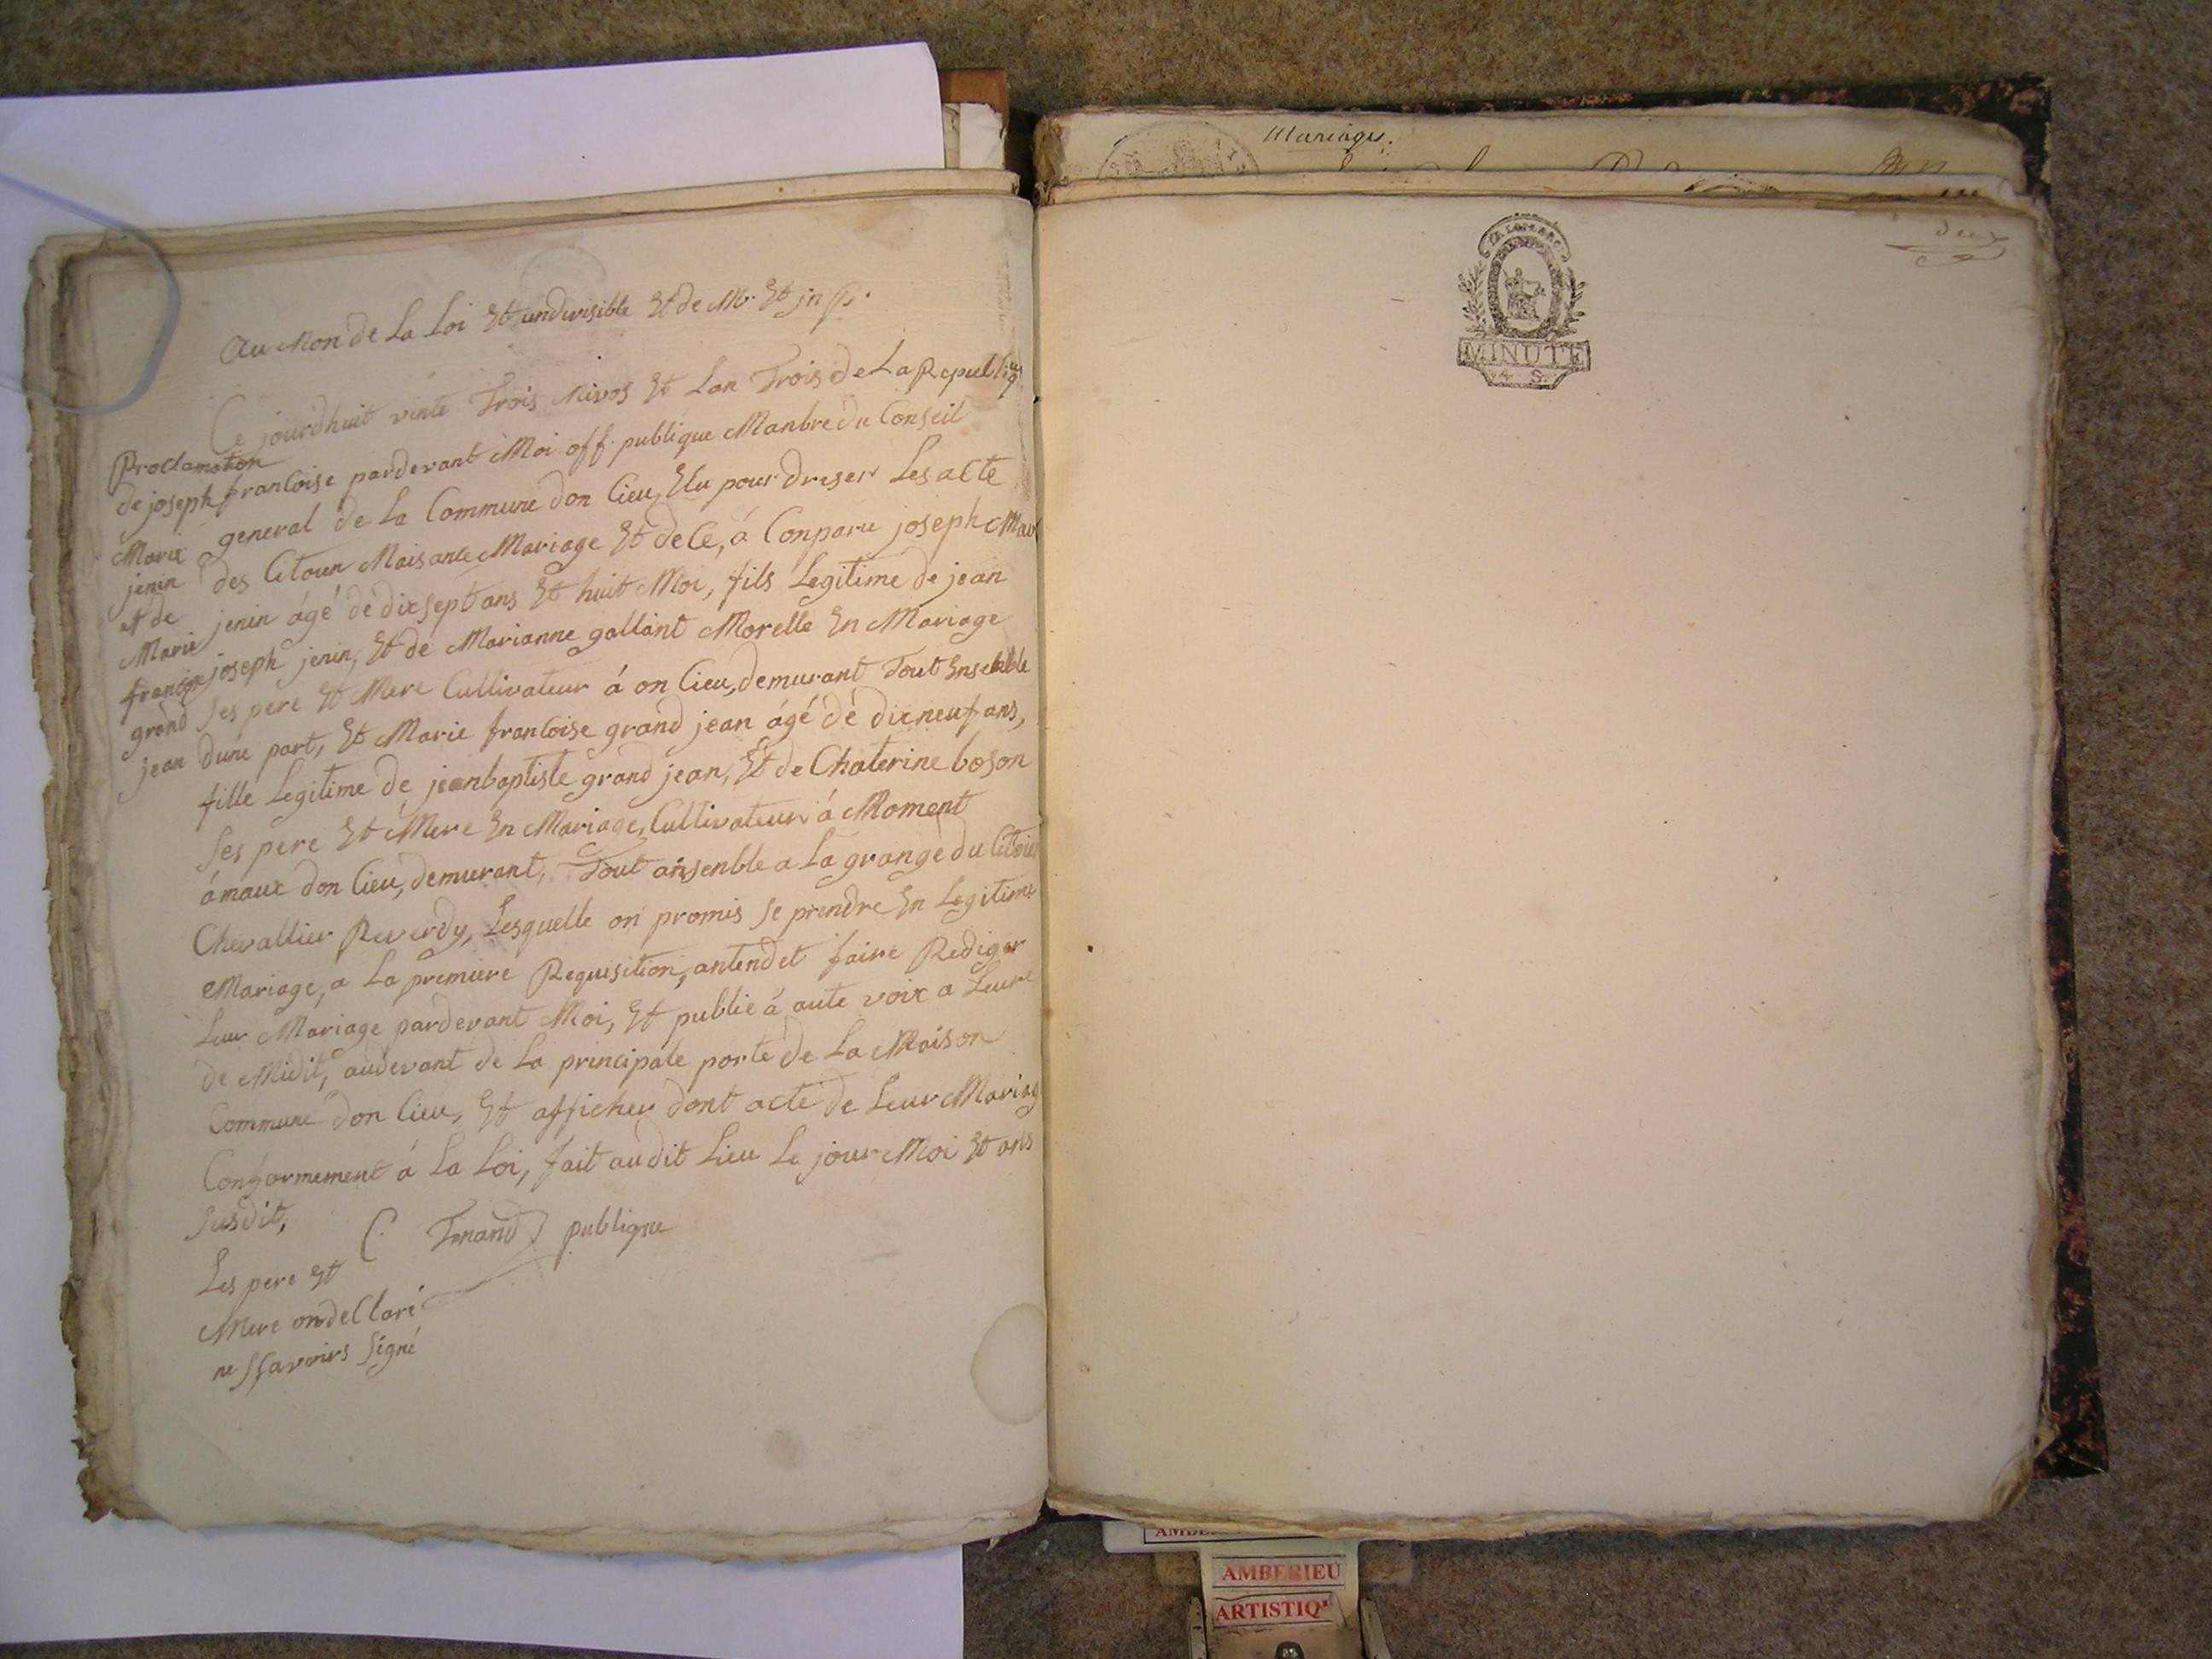 Mariages.
deux
MINUTE
Au Nom de La Loi Et undivisible Et de
Ce jourdhuit vinte Trois Nivos Et Lan Trois de La Republiq
francoise pardevant Moi off. publique Manbre du Conseil
general de La Commune don Cieu, Elu pour dreser Les acte
des Citoun Naisance Mariage Et de Ce, á Conparu joseph Mari
jenin ágé de dix sept ans Et huit Moi, fils Legitime de jean
joseph jenin, Et de Marianne gallant Morelle En Mariage
Ses pere Et Mere Cultivateur á on Cieu, demurant Tout Ensenble
dune part, Et Marie francoise grand jean ágé de dix neuf ans,
fille Legitime de jeanbaptiste grand jean, Et de Chaterine boson
Ses pere Et Mere En Mariage, Cultivateur á Moment
ámaux don Cieu, demurant, Tout ansenble a La grange du Citoien
Chevallier Reverdy, Lesquelle on promis Se prendre En Legitime
Mariage, a La premiere Requisition, antendet faire Rediger
Leur Mariage pardevant Moi, Et publié á aute voix a Leure
de Midit, audevant de La principale porte de La Maison
Commune don Cieu, Et afficher dont acte de Leur Mariag
Conformement á La Loi, fait audit Lieu Le jour Moi Et ans
Susdit,
Proclamation
de joseph
Marix
jenin
et de
Marie
françoise
grand
jean
C. Tenand publique
Les pere Et
Mere on dellaré
ne Sçavoirs Signé
AMBERIEU
ARTISTIQ